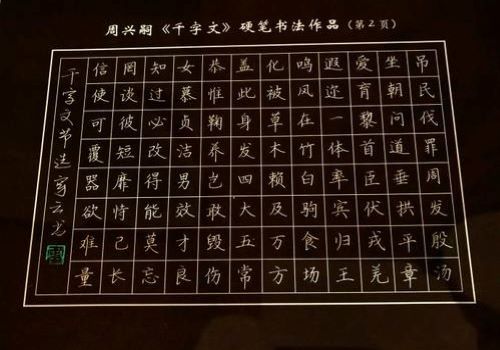 周兴嗣《千字文》硬笔书法作品（第2页）
吊民伐罪周发殷汤
坐朝问道垂拱平章
爱育黎首臣伏戎羌
遐迩一体率宾归王
鸣凤在竹白驹食场
化被草木赖及万方
盖此身发四大五常
恭惟鞠养岂敢毁伤
女慕贞洁男效才良
知过必改得能莫忘
罔谈彼短靡恃己长
信使可覆器欲难量
千字文书选